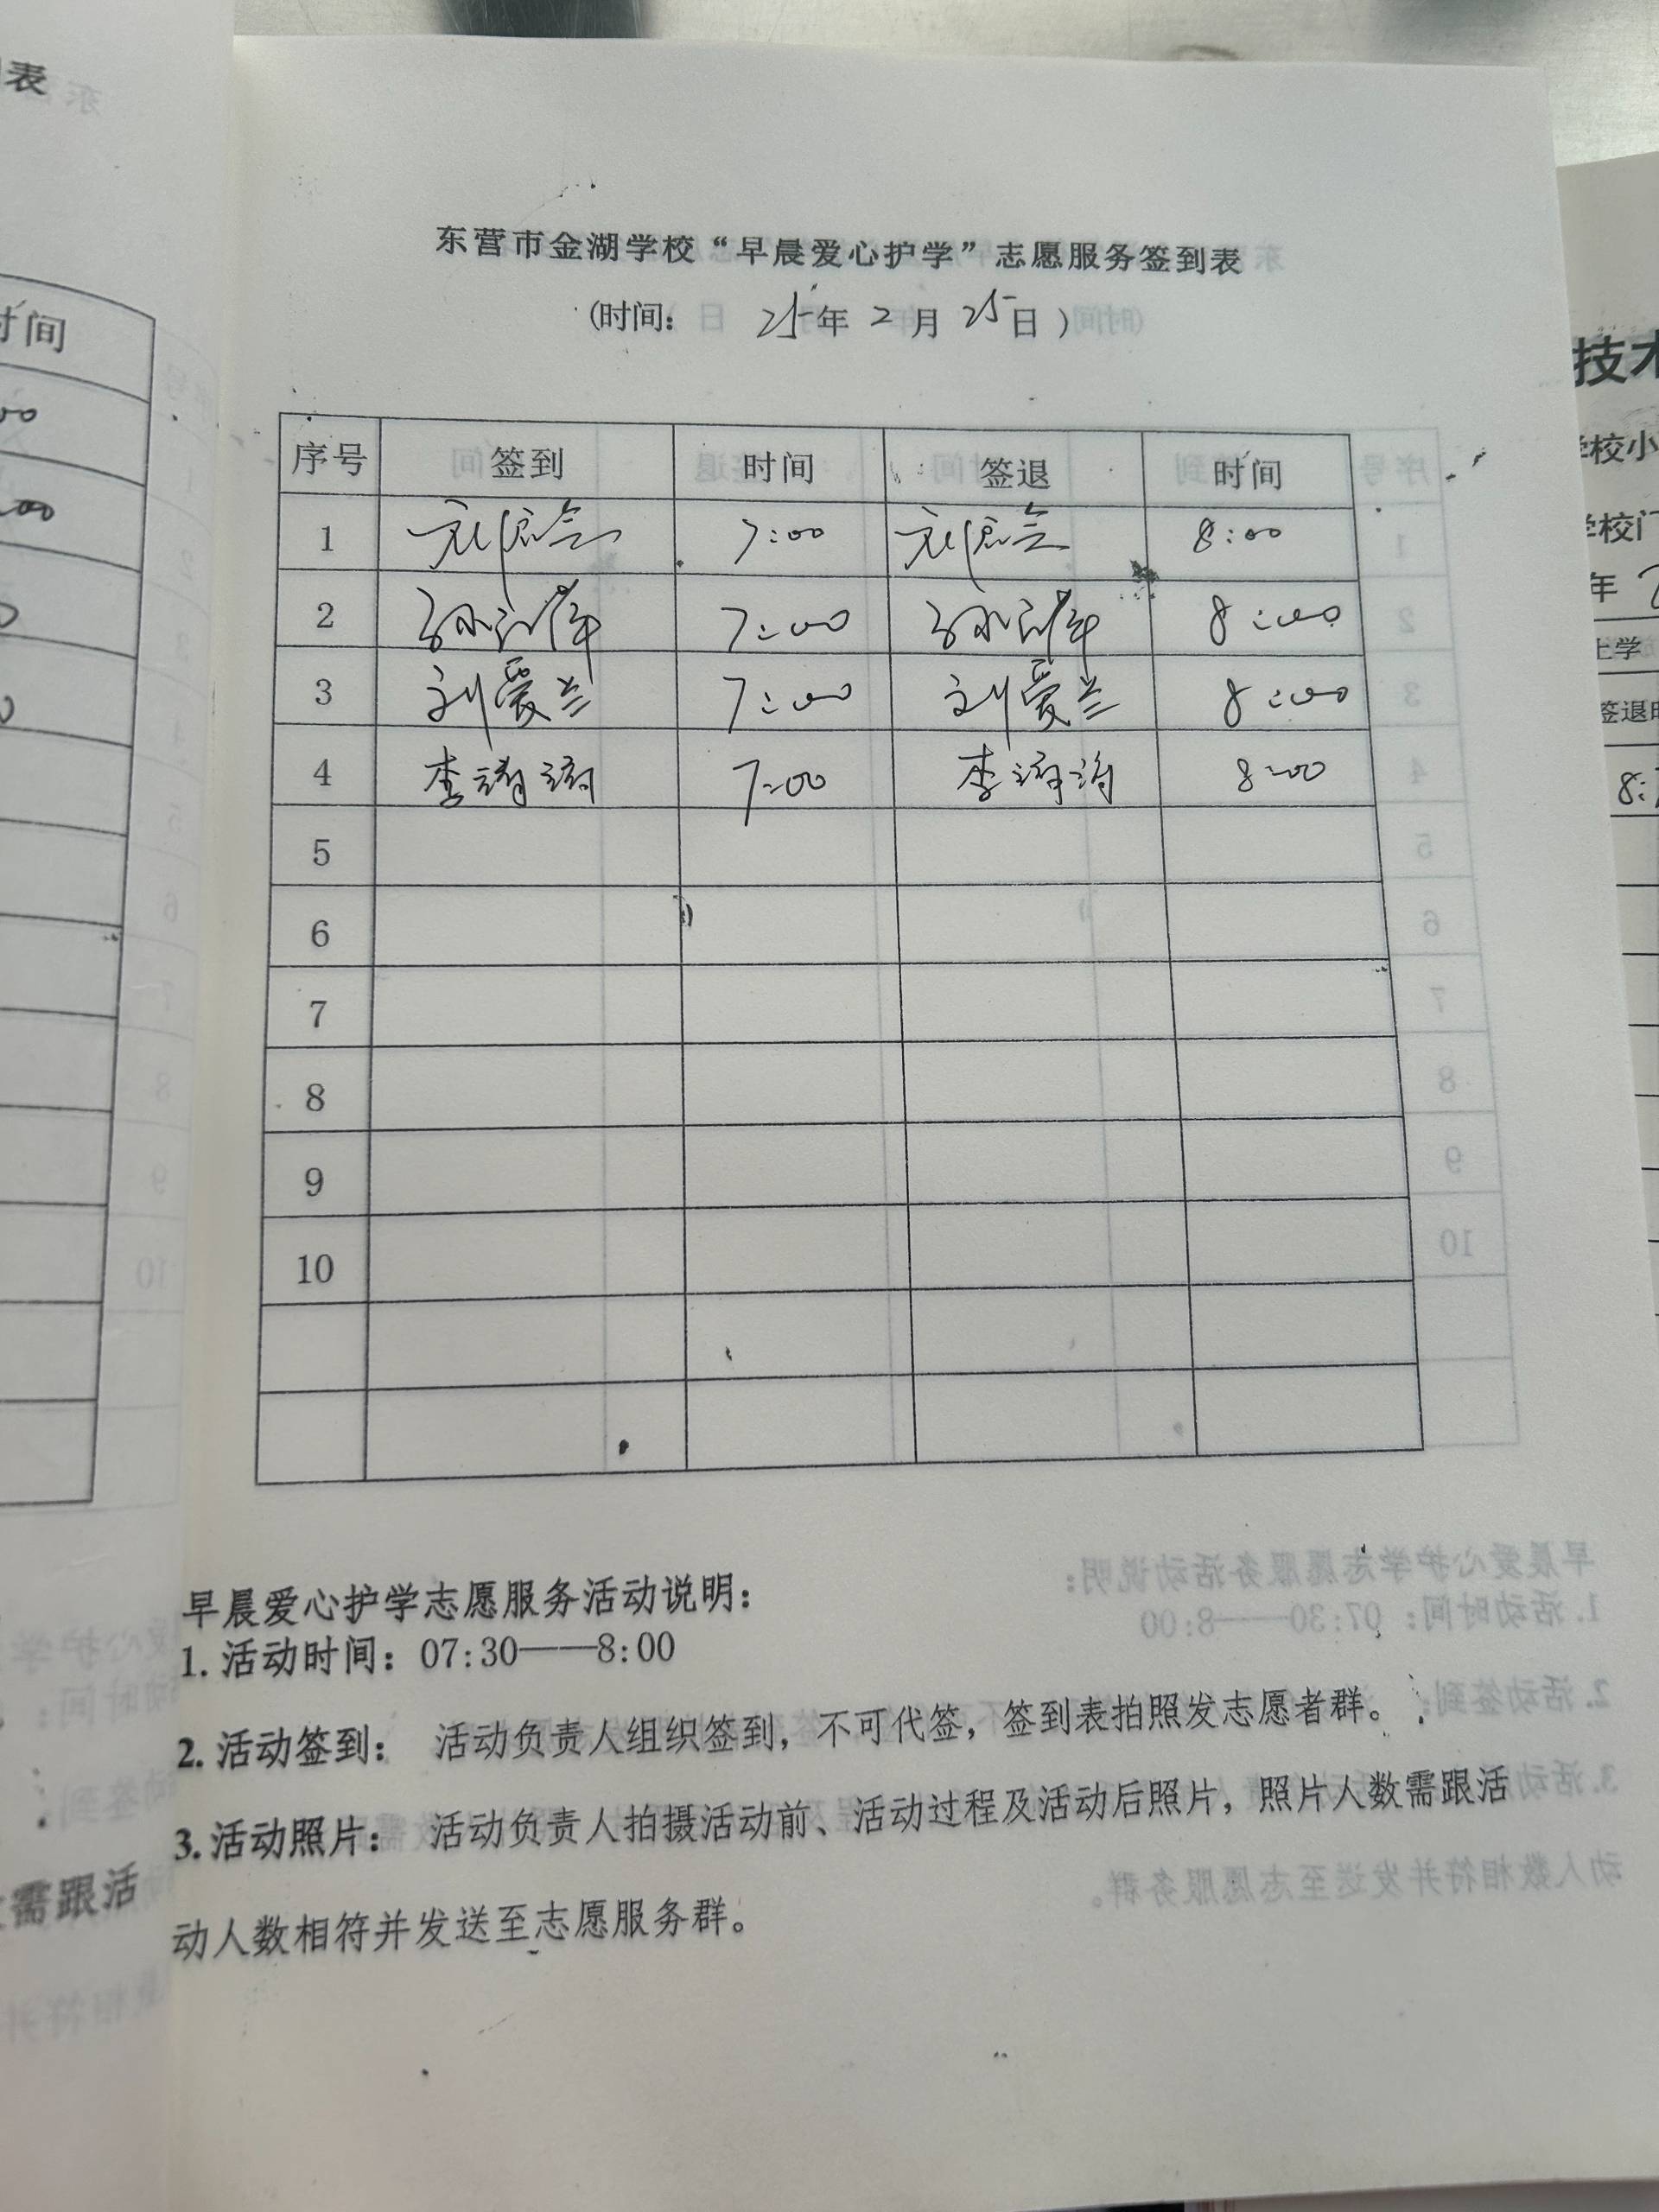 东营市金湖学校“早晨爱心护学”志愿服务签到表
(时间: 25年 2月 25日)
序号 签到 时间 签退 时间
1 7:00 8:00
2 7:00 8:00
3 刘爱兰 7:00 刘爱兰 8:00
4 李 7:00 李 8:00
5
6
7
8
9
10
早晨爱心护学志愿服务活动说明:
1. 活动时间: 07:30——8:00
2. 活动签到: 活动负责人组织签到, 不可代签, 签到表拍照发志愿者群。
3. 活动照片: 活动负责人拍摄活动前、活动过程及活动后照片, 照片人数需跟活
动人数相符并发送至志愿服务群。
表
时间
需跟活
技术
学校小
学校门
年
上学
签退时
8: